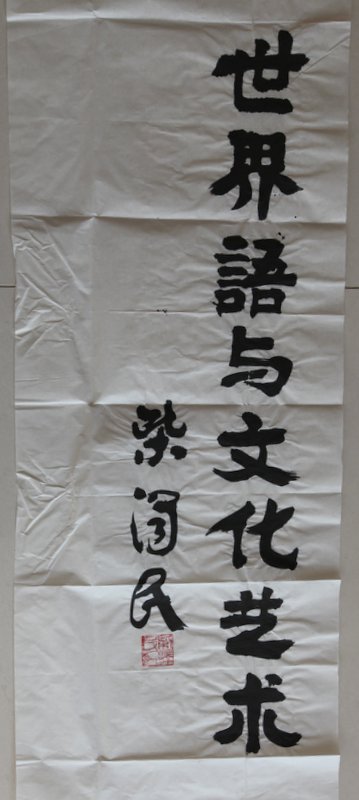 世界語与文化艺术
柴阁民